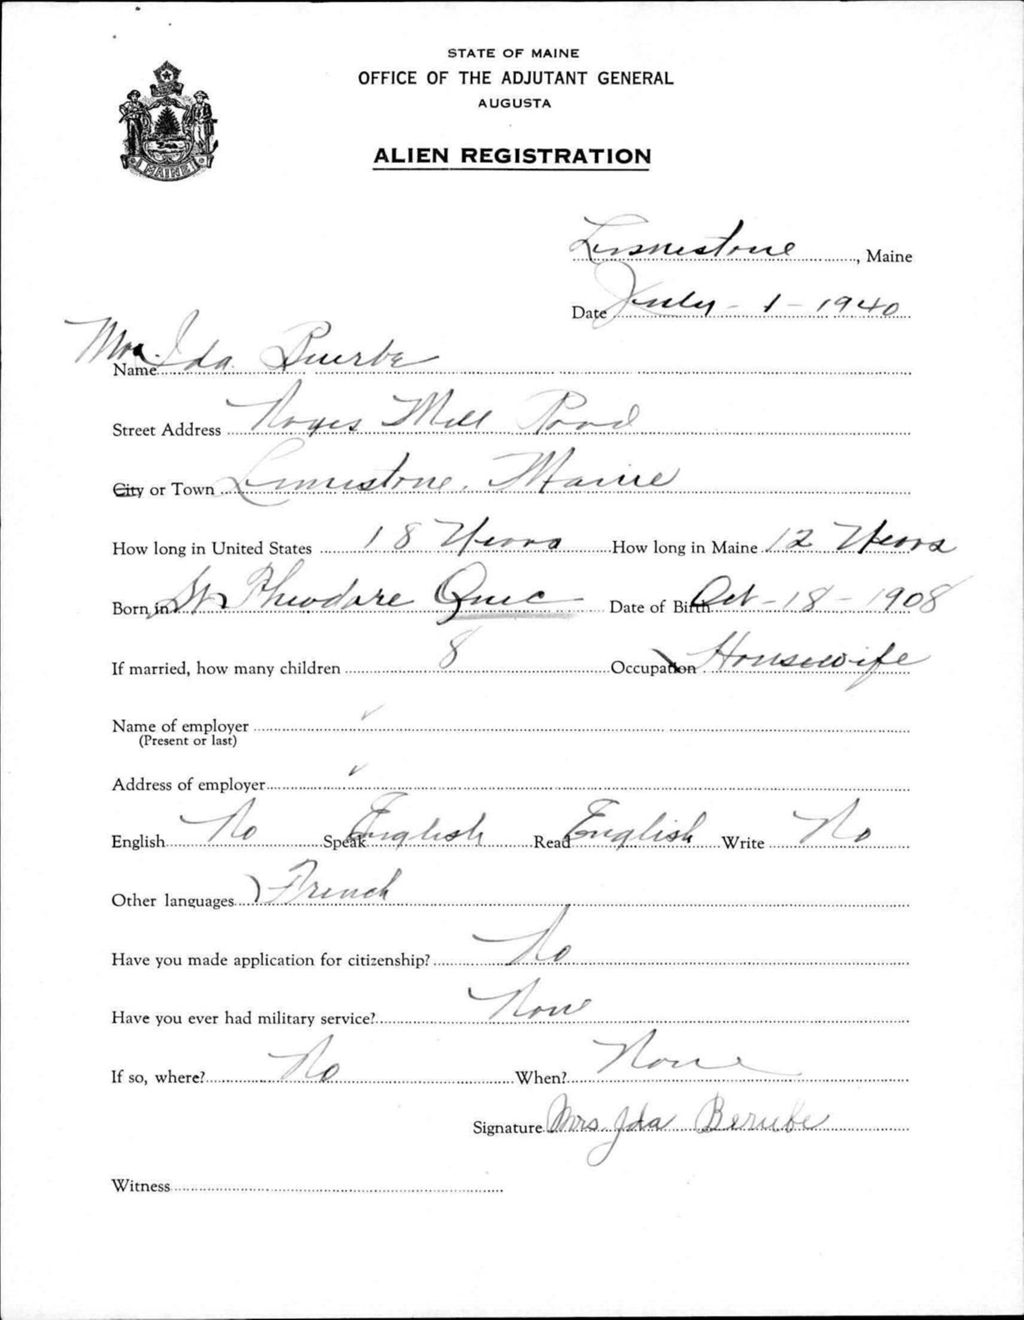 STATE OF MAINE
OFFICE OF THE ADJUTANT GENERAL
AUGUSTA
MAINE
ALIEN REGISTRATION
Limestone, Maine
Date July - 1 - 1940
Name Mrs. Ida Buerbe
Street Address Noyes Mill Road
City or Town Limestone, Maine
How long in United States 18 Years How long in Maine 12 Years
Born in St Theodore Quec Date of Birth Oct - 18 - 1908
If married, how many children 8 Occupation Housewife
Name of employer
(Present or last)
Address of employer
English No Speak English Read English Write No
Other languages French
Have you made application for citizenship? No
Have you ever had military service? None
If so, where? No When? None
Signature Mrs. Ida Berube
Witness